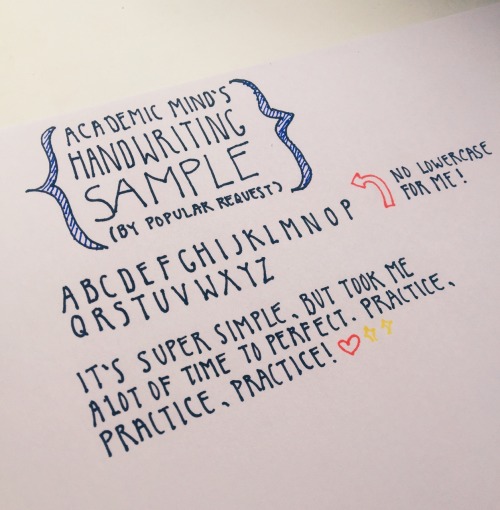 ACADEMIC MIND'S
HANDWRITING
SAMPLE
(BY POPULAR REQUEST)
NO LOWERCASE
FOR ME!
A B C D E F G H I J K L M N O P
Q R S T U V W X Y Z
IT'S SUPER SIMPLE, BUT TOOK ME
A LOT OF TIME TO PERFECT. PRACTICE,
PRACTICE, PRACTICE!